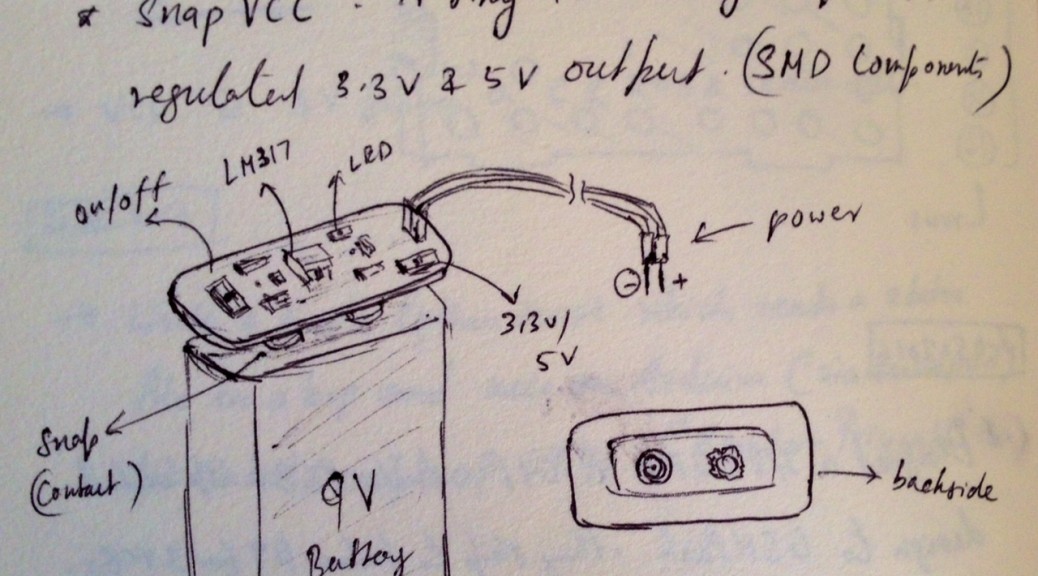 * Snap VCC :
regulated 3.3V & 5V output. (SMD Components)
on/off
LM317
LED
power
⊖ +
3.3V/
5V
Snap
(Contact)
9V
Battery
backside